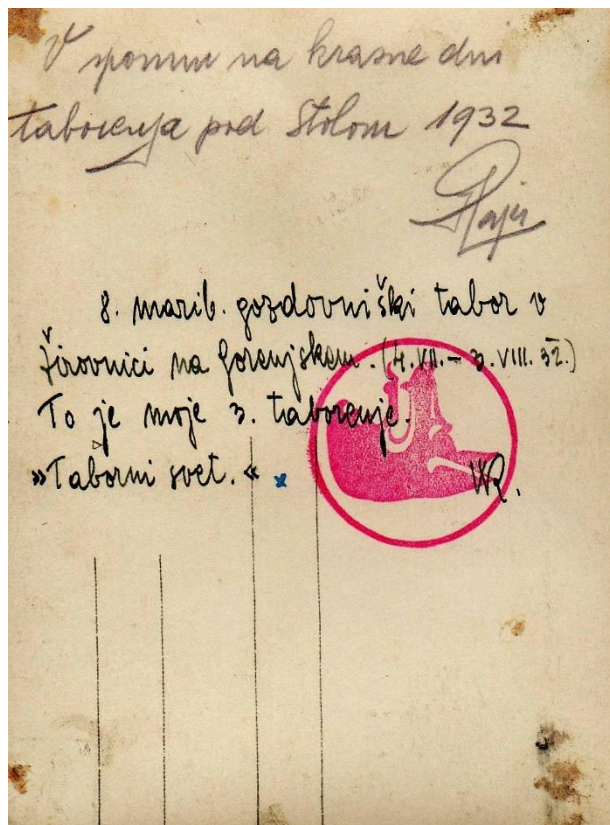 V spomin na krasne dni
taborenja pod Stolom 1932
8. marib. gozdovniški tabor v
Žirovnici na Gorenjskem. (4. VII. – 3. VIII. 32.)
To je moje 3. taborenje.
»Taborni svet.« x